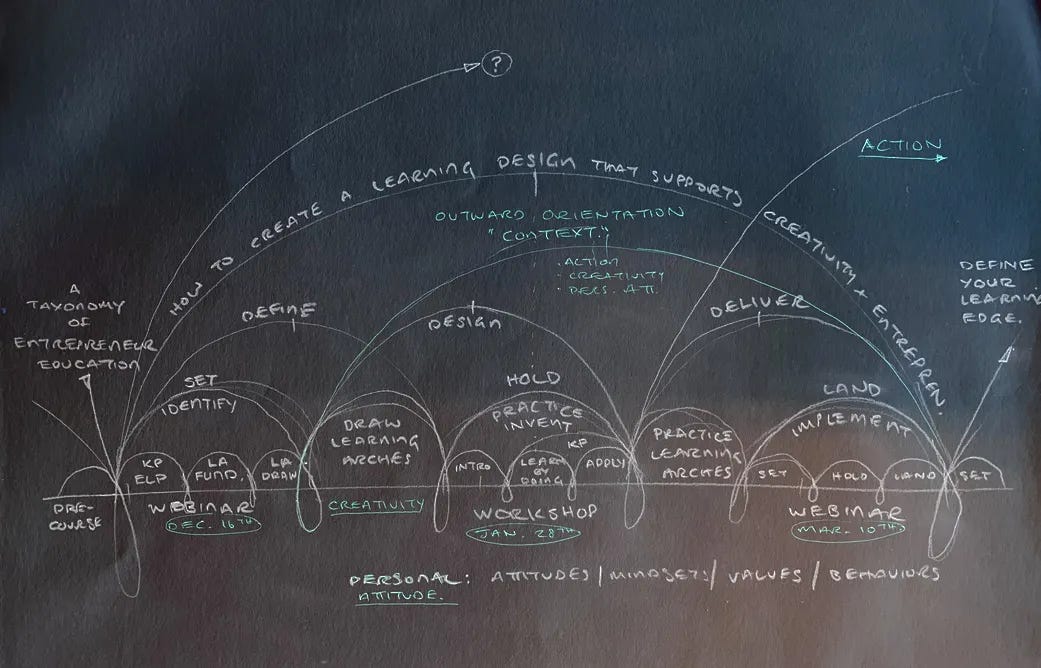 ?
ACTION
HOW TO CREATE A LEARNING DESIGN THAT SUPPORTS CREATIVITY + ENTREPREN.
OUTWARD ORIENTATION
"CONTEXT."
. ACTION
- CREATIVITY
- PERS. ATT.
A
TAXONOMY
OF
ENTREPRENEUR
EDUCATION
DEFINE
DESIGN
DELIVER
DEFINE
YOUR
LEARNING
EDGE.
SET
IDENTIFY
DRAW
LEARNING
ARCHES
HOLD
PRACTICE
INVENT
KP
PRACTICE
LEARNING
ARCHES
LAND
IMPLEMENT
KP
ELP
LA
FUND.
LA
DRAW
INTRO
LEARN
BY
DOING
APPLY
SET
HOLD
LAND
SET
PRE-
COURSE
WEBINAR
DEC. 16TH
CREATIVITY
WORKSHOP
JAN. 28TH
WEBINAR
MAR. 10TH
PERSONAL: ATTITUDES / MINDSETS / VALUES / BEHAVIORS
ATTITUDE.